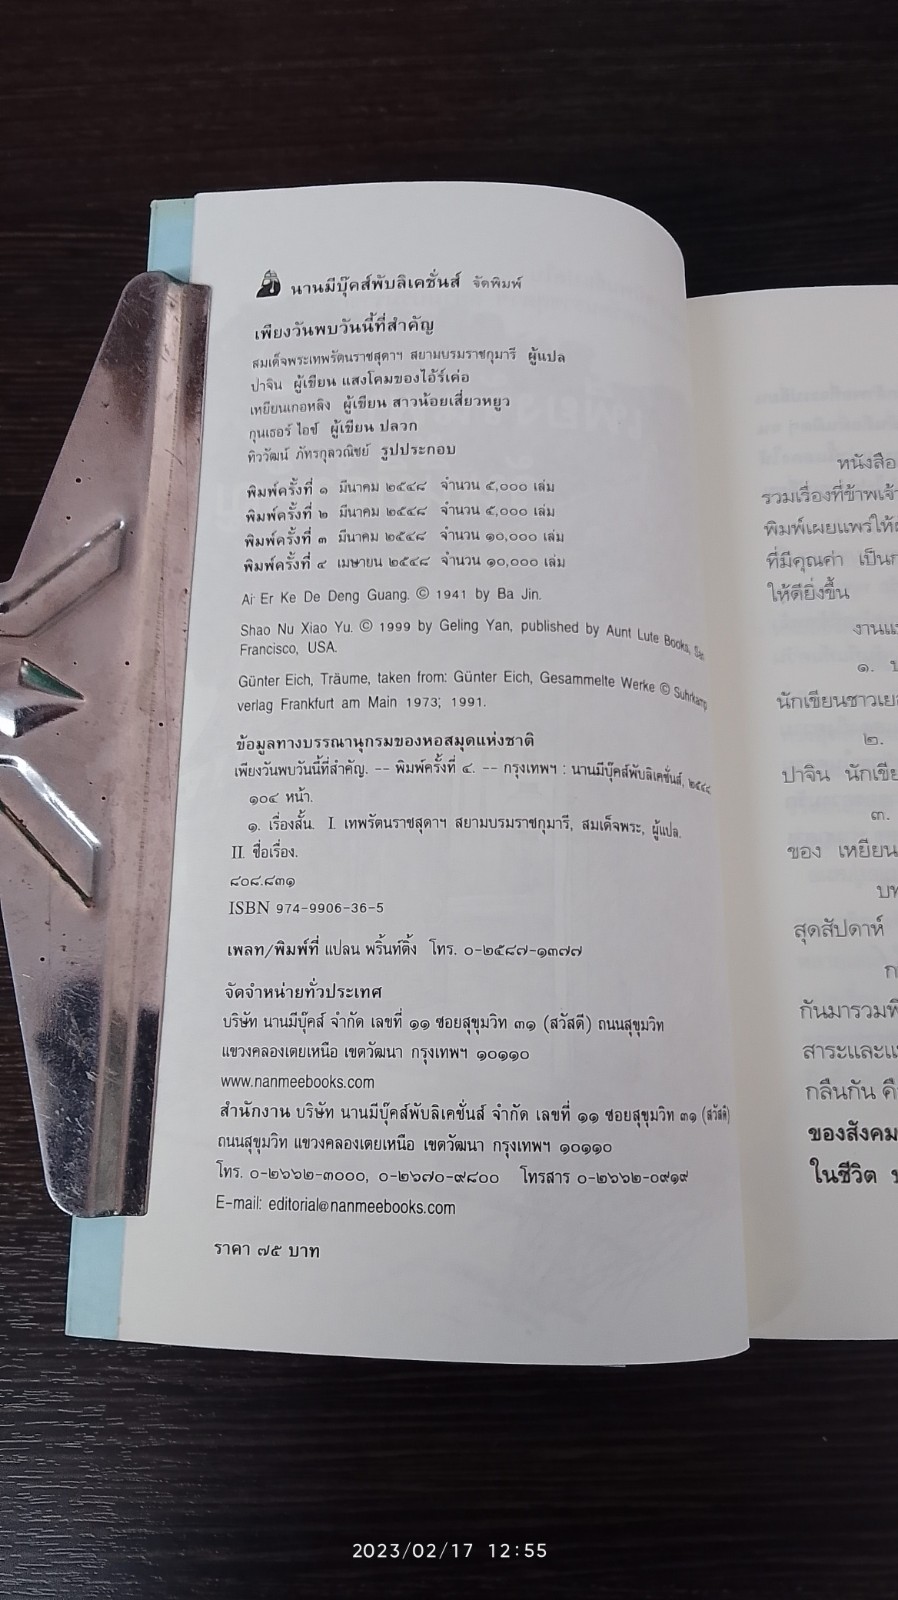 นานมีบุ๊คส์พับลิเคชั่นส์ จัดพิมพ์
เพียงวันพบวันนี้ที่สำคัญ
สมเด็จพระเทพรัตนราชสุดาฯ สยามบรมราชกุมารี ผู้แปล
ปาจิน ผู้เขียน แสงโคมของไอ้ร์เค่อ
เหยียนเกอหลิง ผู้เขียน สาวน้อยเสี่ยวหยูว
กุนเธอร์ ไอช์ ผู้เขียน ปลวก
ทิววัฒน์ ภัทรกุลวณิชย์ รูปประกอบ
พิมพ์ครั้งที่ ๑ มีนาคม ๒๕๔๘ จำนวน ๕,๐๐๐ เล่ม
พิมพ์ครั้งที่ ๒ มีนาคม ๒๕๔๘ จำนวน ๕,๐๐๐ เล่ม
พิมพ์ครั้งที่ ๓ มีนาคม ๒๕๔๘ จำนวน ๑๐,๐๐๐ เล่ม
พิมพ์ครั้งที่ ๔ เมษายน ๒๕๔๘ จำนวน ๑๐,๐๐๐ เล่ม
Ai Er Ke De Deng Guang. © 1941 by Ba Jin.
Shao Nu Xiao Yu. © 1999 by Geling Yan, published by Aunt Lute Books, San
Francisco, USA.
Günter Eich, Träume, taken from: Günter Eich, Gesammelte Werke © Suhrkamp
verlag Frankfurt am Main 1973; 1991.
ข้อมูลทางบรรณานุกรมของหอสมุดแห่งชาติ
เพียงวันพบวันนี้ที่สำคัญ. -- พิมพ์ครั้งที่ ๔. -- กรุงเทพฯ : นานมีบุ๊คส์พับลิเคชั่นส์,
๑๐๔ หน้า.
๑. เรื่องสั้น. I. เทพรัตนราชสุดาฯ สยามบรมราชกุมารี, สมเด็จพระ, ผู้แปล.
II. ชื่อเรื่อง.
๘๐๘.๘๓๑
ISBN 974-9906-36-5
เพลท/พิมพ์ที่ แปลน พริ้นท์ติ้ง โทร. ๐-๒๕๘๗-๑๓๗๗
จัดจำหน่ายทั่วประเทศ
บริษัท นานมีบุ๊คส์ จำกัด เลขที่ ๑๑ ซอยสุขุมวิท ๓๑ (สวัสดี) ถนนสุขุมวิท
แขวงคลองเตยเหนือ เขตวัฒนา กรุงเทพฯ ๑๐๑๑๐
www.nanmeebooks.com
สำนักงาน บริษัท นานมีบุ๊คส์พับลิเคชั่นส์ จำกัด เลขที่ ๑๑ ซอยสุขุมวิท ๓๑ (สวัสดี)
ถนนสุขุมวิท แขวงคลองเตยเหนือ เขตวัฒนา กรุงเทพฯ ๑๐๑๑๐
โทร. ๐-๒๖๖๒-๓๐๐๐, ๐-๒๖๗๐-๙๘๐๐ โทรสาร ๐-๒๖๖๒-๐๙๑๙
E-mail: editorial@nanmeebooks.com
ราคา ๗๕ บาท
หนังสือ
รวมเรื่องที่ข้าพเจ้
พิมพ์เผยแพร่ให้
ที่มีคุณค่า เป็นก
ให้ดียิ่งขึ้น
งานแ
๑.
นักเขียนชาวเย
๒.
ปาจิน นักเขีย
๓.
ของ เหยียน
บท
สุดสัปดาห์
ก
กันมารวมพิ
สาระและแ
กลืนกัน คื
ของสังคม
ในชีวิต
2023/02/17 12:55